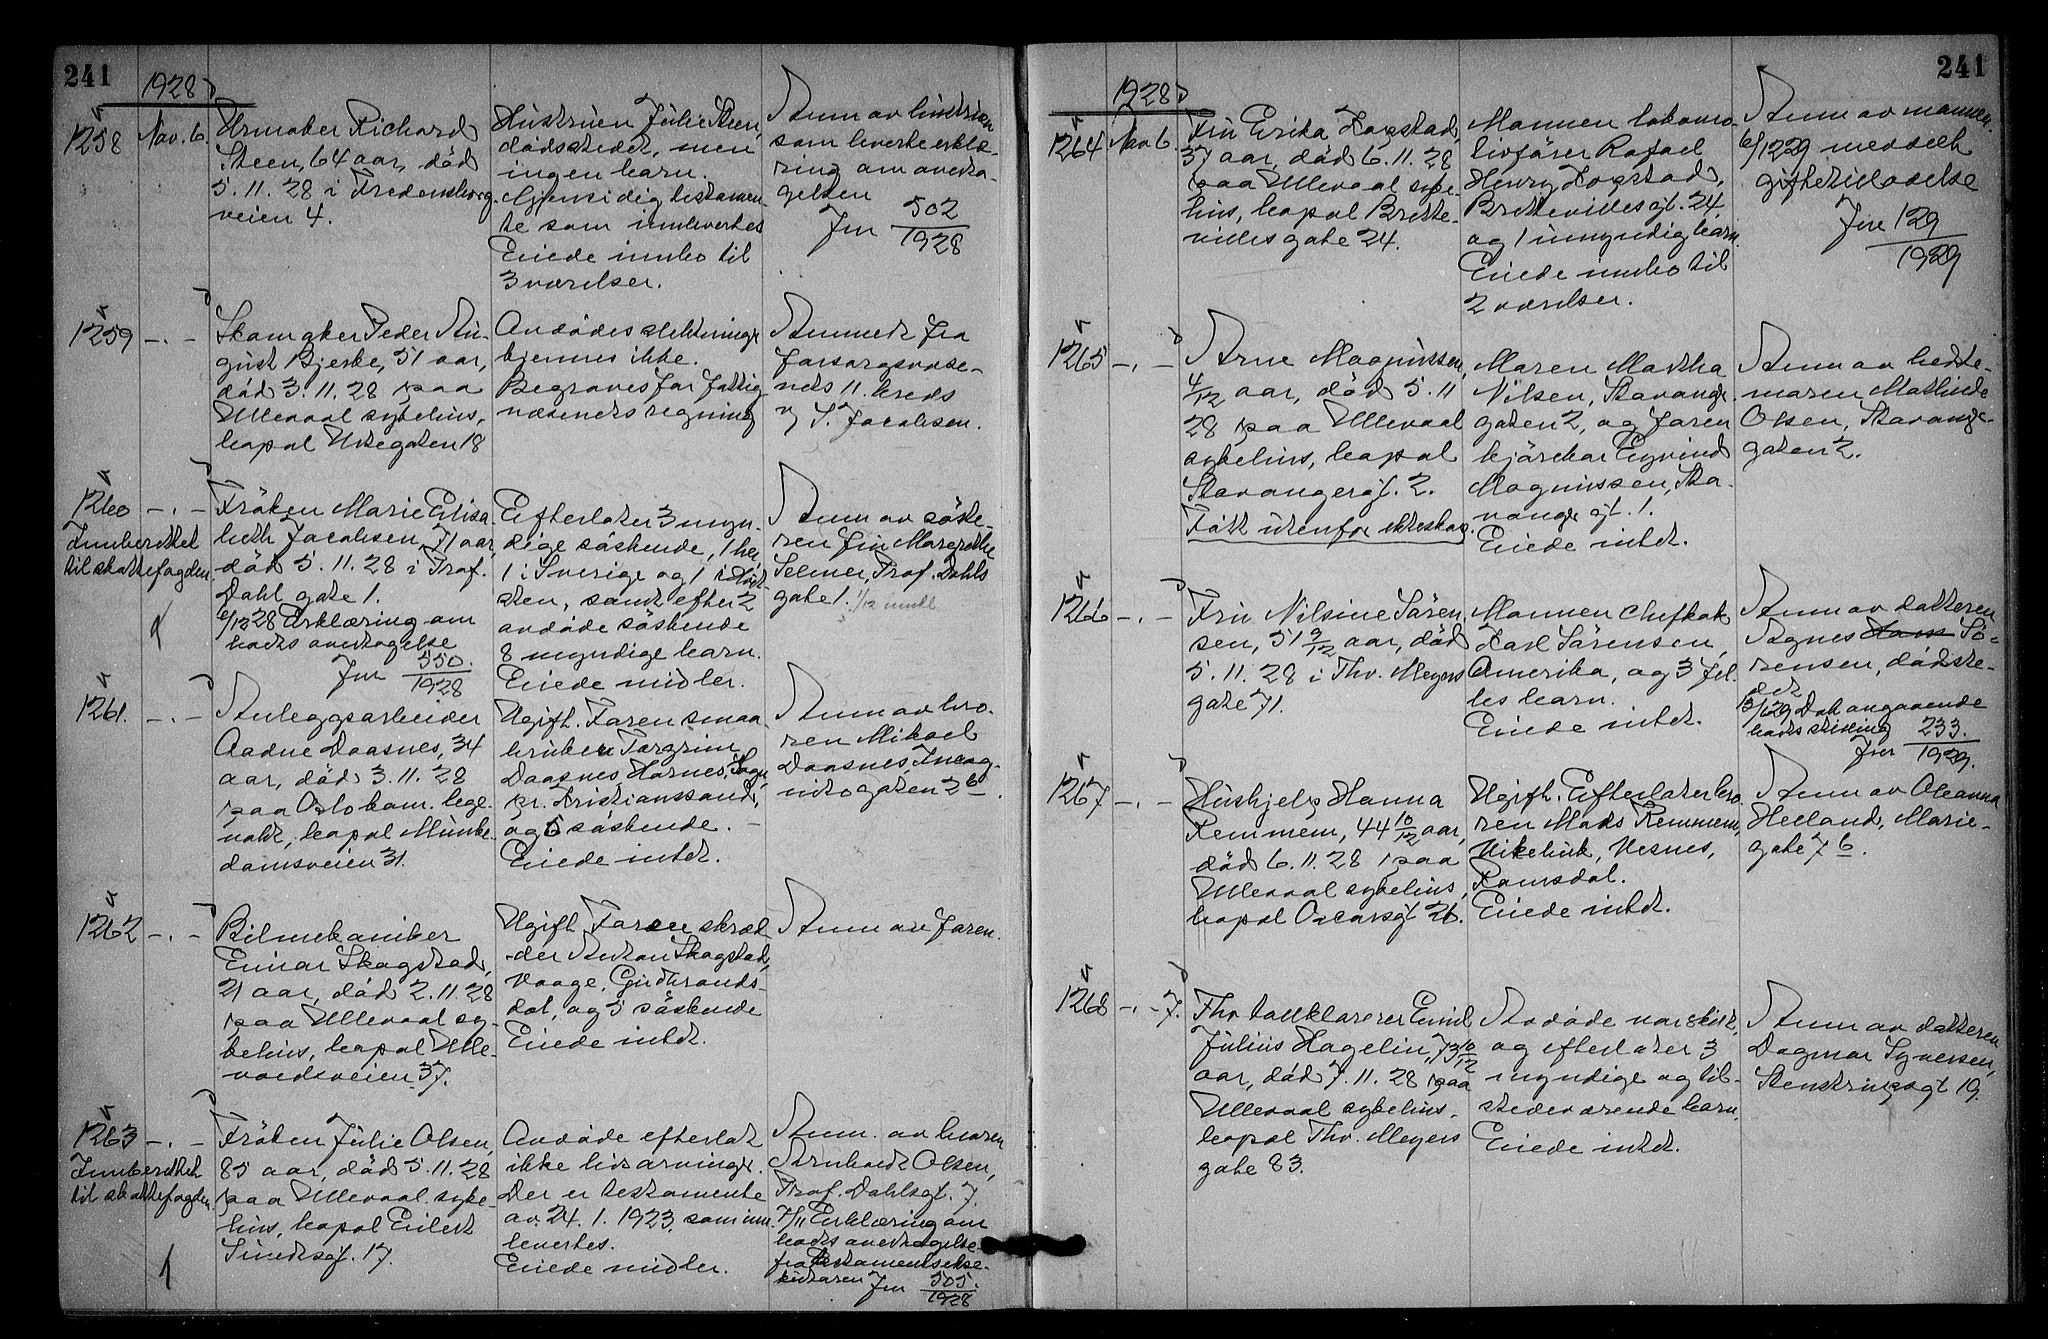 241
1928
1258 Nov. 6.
Urmaker Richard
Steen, 64 aar, död
5.11.28 i Fredensborg-
veien 4.
Hustruen Julie Steen,
dödsstedet, men
ingen barn.
Gjensidig testamen-
te som innlevertes
Eiede innbo til
3 værelser.
Anm av hustruen
som leverte erklæ-
ring om overta-
gelsen
Jnr 502
1928
1259 -.-
Skomaker Peder Au-
gust Bjerke, 51 aar,
död 3.11.28 paa
Ullevaal sykehus,
bopal Urtegaten 18
Avdödes slektninge
kjennes ikke.
Begraves for fattig-
væsenets regning
Anmeldt fra
forsorgsvæse-
nets 11. kreds
v/ S. Jacobsen.
1260 -.-
Innberettet
til skattefogden
Fröken Marie Elisa-
beth Jacobsen, 71 aar,
död 5.11.28 i Prof.
Dahl gate 1.
6/12 28 Erklæring om
boets overtagelse
Jnr 550.
1928
Efterlater 3 myn-
dige söskende, 1 her
1 i Sverige og 1 i
sten, samt efter 2
avdöde söskende
8 myndige barn.
Eiede midler.
Anm av söste-
ren fru Margrethe
Selmer, Prof. Dahls
gate 1.
1261. -.-
Anleggsarbeider
Aadne Daasnes, 34
aar, död 3.11.28
paa Oslo kom. lege-
vakt, bopal Munke-
damsveien 31.
Ugift. Faren smaa-
bruker Torgrim
Daasnes Hornes,
pr. Kristianssand,
og 5 söskende. -
Eiede intet.
Anm av bro-
ren Mikael
Daasnes, Incog-
nitogaten 3 b.
1262 -.-
Bilmekaniker
Einar Skogstad,
21 aar, död 2.11.28
paa Ullevaal sy-
kehus, bopal Ulle-
voldsveien 37.
Ugift. Faren skræd-
der Anton Skogstad,
Vaage, Gudbrands-
dal, og 5 söskende
Eiede intet.
Anm av faren.
1263 -.-
Innberettet
til skattefogden.
Fröken Julie Olsen,
85 aar, död 5.11.28
paa Ullevaal syke-
hus, bopal Eilert
Sundtsgt. 17.
Avdöde efterlot
ikke livsarvinger.
Der er testamente
av 24.1.1923, som inn-
levertes.
Eiede midler.
Anm. av broren
Arnholdt Olsen,
Prof. Dahlsgt. 7.
7/11 Erklæring om
boets overtagelse
fra testamentsekse-
kutoren Jnr 505.
1928
241
1928
1264 Nov 6.
Fru Erika Hogstad,
37 aar, död 6.11.28
paa Ullevaal syke-
hus, bopal Brette-
villes gate 24.
Mannen lokomo-
tivförer Rafael
Henry Hogstad,
Brettevillesgt. 24,
og 1 umyndig barn.
Eiede innbo til
2 værelser.
Anm av mannen.
6/12 29 meddelt
giftetilladelse
Jnr 129
1929
1265 -.-
Arne Magnussen,
4/12 aar, död 5.11
28 paa Ullevaal
sykehus, bopal
Stavangergt. 2.
Född utenfor ekteskap.
Moren Martha
Nilsen, Stavanger
gaten 2, og faren
kjörekar Eyvind
Magnussen, Sta-
vanger gt. 1.
Eiede intet.
Anm av beste-
moren Mathilde
Olsen, Stavanger-
gaten 2.
1266 -.-
Fru Nilsine Sören-
sen, 51 9/12 aar, död
5.11.28 i Thv. Meyers
gate 71.
Mannen chefkok
Karl Sörensen,
Amerika, og 3 fel-
les barn.
Eiede intet.
Anm av datteren
Agnes Sö-
rensen, dödste-
det
Dok angaaende
boets skifting 233.
Jnr 1929.
1267 -.-
Hushjelp Hanna
Remmem, 44 10/12 aar,
död 6.11.28 paa
Ullevaal sykehus,
bopal Oscarsgt 26.
Ugift. Efterlater bro-
ren Mads Remmem,
Vikebuk, Vesnes,
Romsdal.
Eiede intet.
Anm av Oleanna
Helland, Marie-
gate 7 b.
1268 -.-7.
Fhv tollklarerer Emil
Julius Hagelin, 73 10/12
aar, död 7.11.28 paa
Ullevaal sykehus.
bopal Thv. Meyers
gate 83.
Avdöde var skilt,
og efterlater 3
myndige og til-
stedeværende barn.
Eiede intet.
Anm av datteren
Dagmar Syversen,
Stenstrupsgt 19.